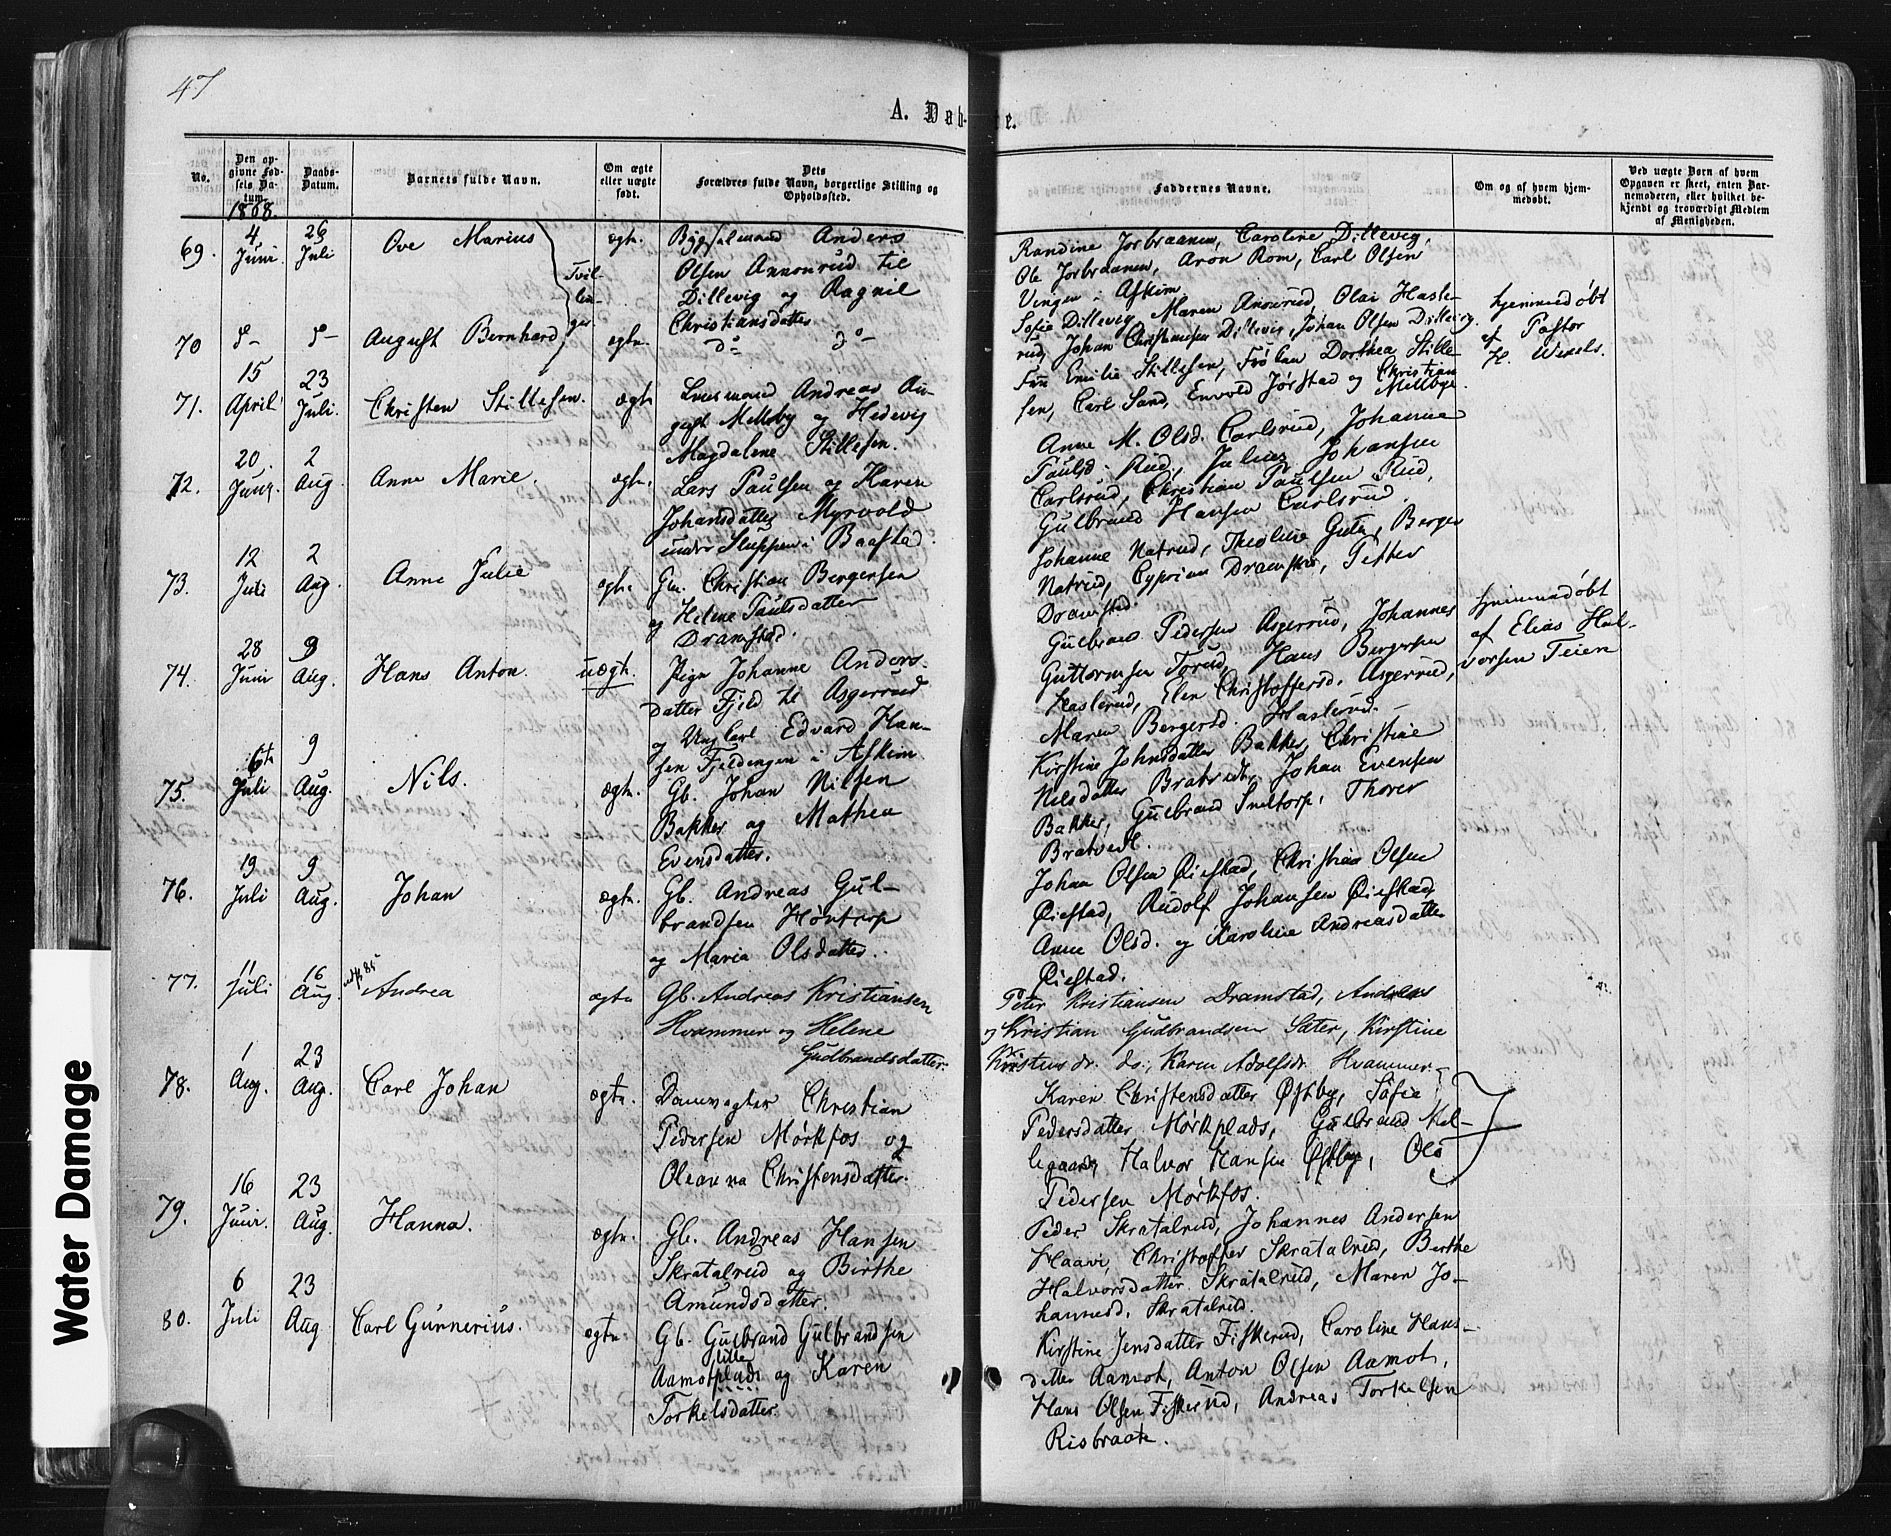 47
A. Døb- te.
No.
Den op-
givne Fød-
sels Da-
tum.
Daabs-
Datum.
Barnets fulde Navn.
Om ægte
eller uægte
født.
Dets
Forældres fulde Navn, borgerlige Stilling og
Opholdssted.
Faddernes Navne.
Om og af hvem hjem-
medøbt.
Ved uægte Børn af hvem
Opgaven er skeet, enten Bar-
nemoderen, eller hvilket be-
kjendt og troværdigt Medlem
af Menigheden.
1868.
69.
4
Juni
26
Juli
Ove Marius
Tvil-
lin-
ger
ægte.
Bygselmand Anders
Olsen Annonrud til
Dillevig og Ragnil
Christiansdatter
Randine Jorbraanen, Caroline Dillevig,
Ole Jorbraanen, Aron Rom, Carl Olsen
Vingen i Askim
70
August Bernhard
ægte.
do do
Sofie Dillevig, Maren Anonrud, Olai Hasle-
rud, Johan Christiansen Dillevig, Johan Olsen Dillevig.
hjemmedøbt
af Pastor
H. Wexels.
71.
15
April
23
Juli.
Christen Stillesen.
ægte
Lensmand Andreas Au-
gust Mellby og Hedevig
Magdalene Stillesen.
Fru Emilie Stillesen, Frøken Dorthea Stille-
sen, Carl Sand, Envold Jørstad og Christian
Mellbye.
72.
20.
Juni.
2
Aug.
Anne Marie.
ægte.
Lars Paulsen og Karen
Johansdatter Myrvold
under Sleppen i Baastad.
Anne M. Olsd. Carlsrud, Johanne
Paulsd. Rud, Julius Johansen
Carlsrud, Christian Paulsen Rud,
Gulbrand Hansen Carlsrud.
73.
12
Juli
2
Aug.
Anne Julie
ægte.
Gm. Christian Bergersen
og Helene Paulsdatter
Dramstad.
Johanne Natrud, Theoline Guten, Berger
Natrud, Cyprian Dramstad, Petter
Dramstad.
74.
28
Juni
9
Aug.
Hans Anton.
uægte.
Pige Johanne Anders-
datter Fjeld til Asgerrud
og Ungkarl Edvard Han-
sen Fjeldengen i Askim.
Gulbrand Pedersen Asgerrud, Johannes
Guttormsen Torud, Hans Bergersen
Haslerud, Elen Christoffersd. Asgerrud,
Maren Bergersd. Haslerud.
hjemmedøbt
af Elias Hal-
vorsen Teien
75.
6te
Juli
9
Aug.
Nils.
ægte.
Gb. Johan Nilsen
Bakker og Mathea
Evensdatter.
Kirstine Johnsdatter Bakker, Christine
Nilsdatter Bratvedt, Johan Evensen
Bakker, Gulbrand Sneltorp, Thorer
Bratvedt.
76.
19
Juli
9
Aug.
Johan
ægte.
Gb. Andreas Gul-
brandsen Høntorp
og Maria Olsdatter.
Johan Olsen Øiestad, Christian Olsen
Øiestad, Rudolf Johansen Øiestad,
Anne Olsd. og Karoline Andreasdatter
Øiestad.
77.
11
Juli
16
Aug.
Andrea
ægte
Gb. Andreas Kristiansen
Hvammer og Helene
Gudbrandsdatter.
Peter Kristiansen Dramstad, Andreas
og Kristian Gudbrandsen Sæter, Kirstine
Kristiansdr. do., Karen Adolfsdr. Hvammer
78.
1
Aug.
23
Aug.
Carl Johan
ægte.
Damvogter Christian
Pedersen Mørkfos og
Oleanna Christensdatter.
Karen Christensdatter Østby, Sofie
Pedersdatter Mørkplads, Gulbrand Mel-
legaard, Halvor Hansen Østby, Ole
Pedersen Mørkfos.
79.
16
Juni.
23
Aug.
Hanna.
ægte.
Gb. Andreas Hansen
Skratalrud og Birthe
Amundsdatter.
Peder Skratalrud, Johannes Andersen
Haavi, Christoffer Skratalrud, Berthe
Halvorsdatter Skratalrud, Maren Jo-
hannesd. Skratalrud.
80.
6
Juli
23
Aug.
Carl Gunnerius.
ægte.
Gb. Gulbrand Gulbrandsen
lille
Aamotplads og Karen
Torkelsdatter
Kirstine Jensdatter Fiskerud, Caroline Hans-
datter Aamot, Anton Olsen Aamot,
Hans Olsen Fiskerud, Andreas Torkelsen
Risbraate.
Water Damage